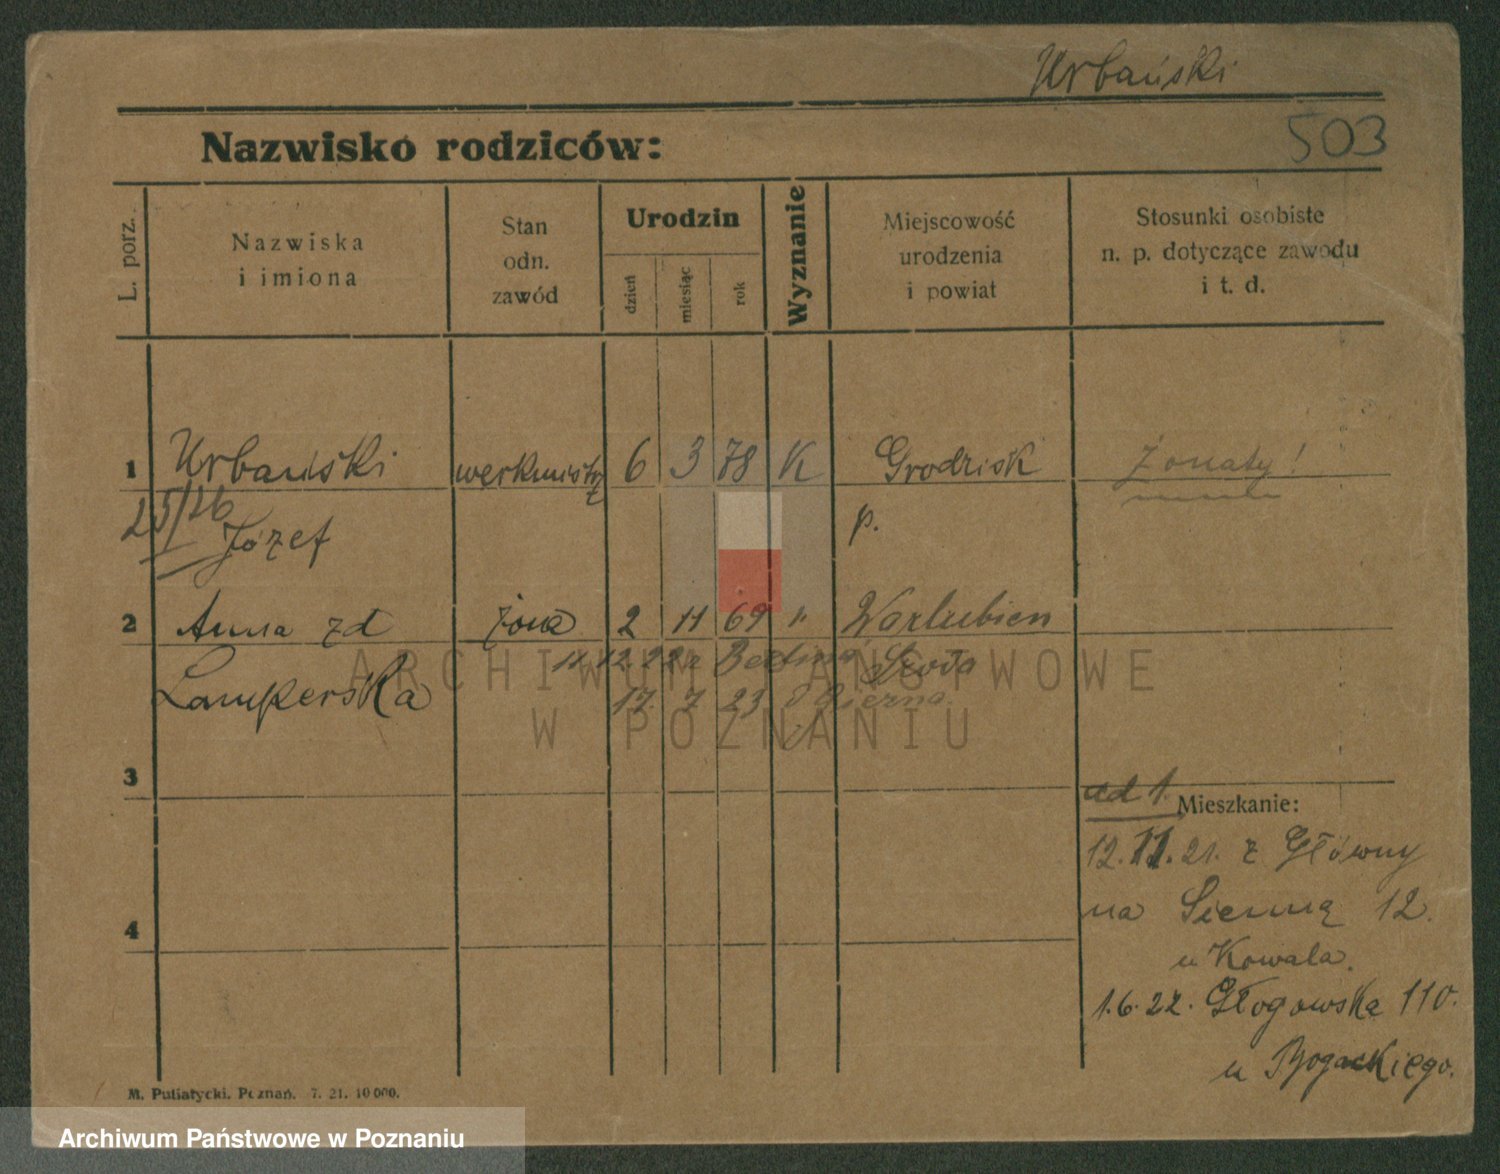 Urbański
Nazwisko rodziców:
503
L. porz.
Nazwiska
i imiona
Stan
odn.
zawód
Urodzin
dzień
miesiąc
rok
Wyznanie
Miejscowość
urodzenia
i powiat
Stosunki osobiste
n. p. dotyczące zawodu
i t. d.
1 Urbański werkmistrz 6 3 78 K Grodzisk Żonaty!
25/26
Józef p.
2 Anna zd żona 2 11 69 " Warlubien
12.22 z Śwda
Lamperska 17. 7 23
ARCHIWUM PAŃSTWOWE
W POZNANIU
3
ad 1. Mieszkanie:
12.11.21. z Główny
na Sienną 12.
4
u Kowala.
1.6.22. Głogowska 110.
u Bogackiego.
M. Putiatycki. Poznań. 7. 21. 10 000.
Archiwum Państwowe w Poznaniu